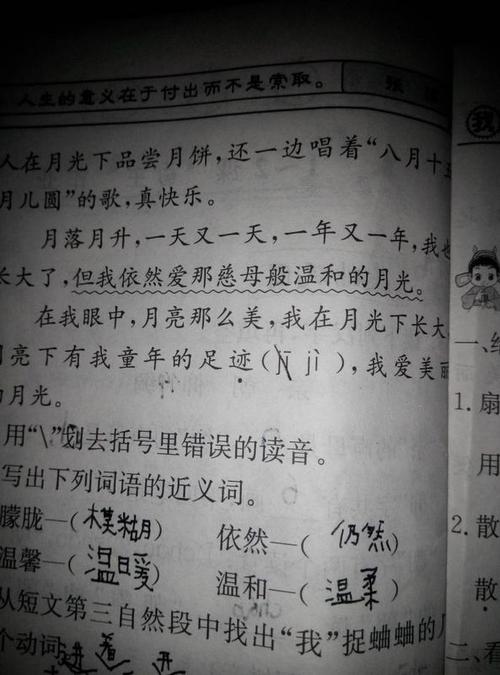 人生的意义在于付出而不是索取。
人在月光下品尝月饼，还一边唱着“八月十五
月儿圆”的歌，真快乐。
月落月升，一天又一天，一年又一年，我也
长大了，但我依然爱那慈母般温和的月光。
在我眼中，月亮那么美，我在月光下长大
月亮下有我童年的足迹（jī jì），我爱美丽
的月光。
用“\”划去括号里错误的读音。
写出下列词语的近义词。
朦胧—(模糊) 依然—(仍然)
温馨—(温暖) 温和—(温柔)
从短文第三自然段中找出“我”捉蛐蛐的几
个动词
我
一、
1. 扇
用
2. 散
散
二、看